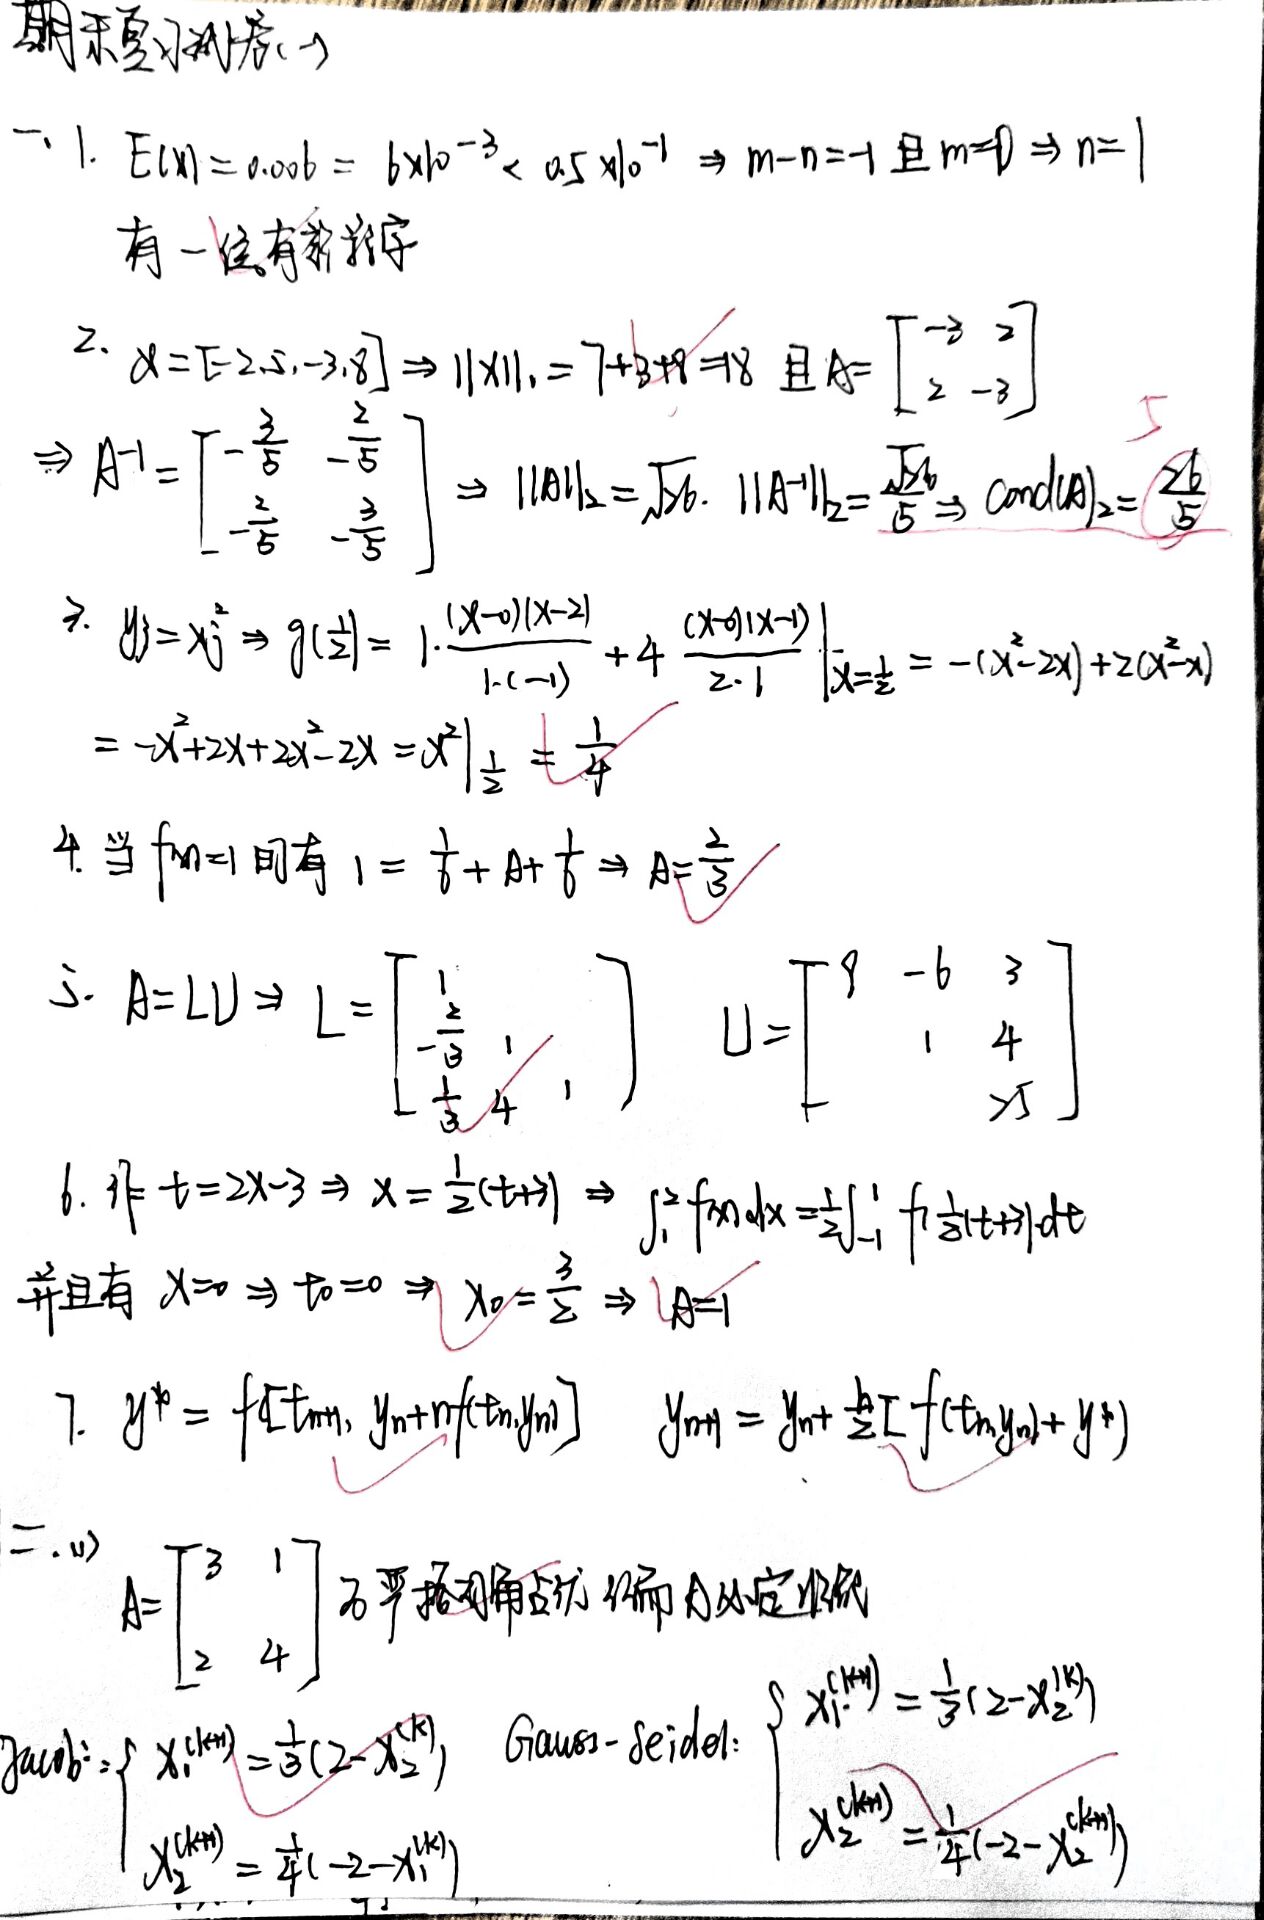 期末复习试卷(一)
一、1. E(x)=0.006= 6×10⁻³< 0.5×10⁻¹ ⇒ m-n=-1 且 m=0 ⇒ n=1
有一位有效数字
2. x=[-2,5,-3,8] ⇒ ||x||₁ = 7+3+8=18 且 A= [-3 2; 2 -3]
5
⇒ A⁻¹= [-3/5 -2/5; -2/5 -3/5] ⇒ ||A||₂=√26. ||A⁻¹||₂=√26/5 ⇒ Cond(A)₂= 26/5
3. yj=xj² ⇒ g(1/2)= 1·(x-0)(x-2)/1·(-1) +4 (x-0)(x-1)/2·1 |x=1/2 = -(x²-2x)+2(x²-x)
= -x²+2x+2x²-2x =x²|1/2 = 1/4
4. 当 f(x)=1 时有 1= 1/6+A+1/6 ⇒ A=2/3
5. A=LU ⇒ L= [1; -2/3 1; 1/3 4 1] U= [9 -6 3; 1 4; 25]
6. 作 t=2x-3 ⇒ x=1/2(t+3) ⇒ ∫₁² f(x)dx=1/2∫₋₁¹ f(1/2(t+3))dt
并且有 x=0 ⇒ t₀=0 ⇒ x₀=3/2 ⇒ A=1
7. y* = f[tn+1, yn+hf(tn,yn)] yn+1 = yn+ h/2[f(tn,yn)+y*)
二.(1) A= [3 1; 2 4] 为严格对角占优 从而A必定收敛
Jacobi: { x₁⁽ᵏ⁺¹⁾=1/3(2-x₂⁽ᵏ⁾) Gauss-Seidel: { x₁⁽ᵏ⁺¹⁾=1/3(2-x₂⁽ᵏ⁾)
x₂⁽ᵏ⁺¹⁾=1/4(-2-x₁⁽ᵏ⁾) x₂⁽ᵏ⁺¹⁾=1/4(-2-x₂⁽ᵏ⁺¹⁾)